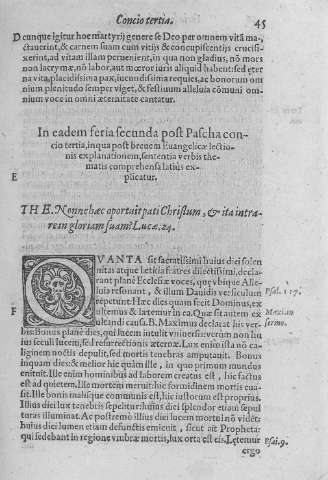 Concio tertia. 45
D cunque igitur hoc martyrij genere se Deo per omnem vitā ma-
ctauerint, & carnem suam cum vitijs & concupiscentijs crucifi-
xerint, ad vitam illam peruenient, in qua non gladius, nō mors
non lacrymæ, nō labor, aut mœror iuris aliquid habent: sed æter
na vita, placidissima pax, iucundissima requies, ac bonorum om
nium plenitudo semper viget, & festiuum alleluia cōmuni om-
nium voce in omni æternitate cantatur.
In eadem feria secunda post Pascha con-
cio tertia, in qua post breuem Euangelicæ lectio-
nis explanationem, sententia verbis the-
matis comprehensa latius ex-
E plicatur.
THE. Nonne hæc oportuit pati Christum, & ita intra-
re in gloriam suam? Lucæ. 24.
QVANTA sit sacratissimi huius diei solen
nitas atque letitia fratres dilectissimi, decla-
rant planè Ecclesiæ voces, quę vbique Alle-
luia resonant, & illum Dauidis versiculum Psal. 117.
repetunt Hæc dies quam fecit Dominus, ex
F ultemus & lætemur in ea. Quæ sit autem ex Maximi
ultandi causa, B. Maximus declarat his ver- sermo.
bis: Bonus planè dies, qui lucem intulit viuentis: verùm non hu
ius seculi lucem, sed resurrectionis æternæ. Lux enim ista nō ca-
liginem noctis depulit, sed mortis tenebras amputauit. Bonus
inquam dies: & melior hic quàm ille, in quo primum mundus
enituit. Ille enim hominibus ad laborem creatus est, hic factus
est ad quietem. Ille mortem meruit: hic formidinem mortis eua-
sit. Ille bonis malisque communis est, hic iustorum est proprius.
Illius diei lux tenebris sepelitur: huius diei splendor etiam sepul
turas illuminat. Ac postremò illius diei lucem mortui nō vidēt:
huius diei lumen etiam defunctis emicuit, sicut ait Propheta:
qui sedebant in regione vmbræ mortis, lux orta est eis. Lętemur Esai. 9.
ergo